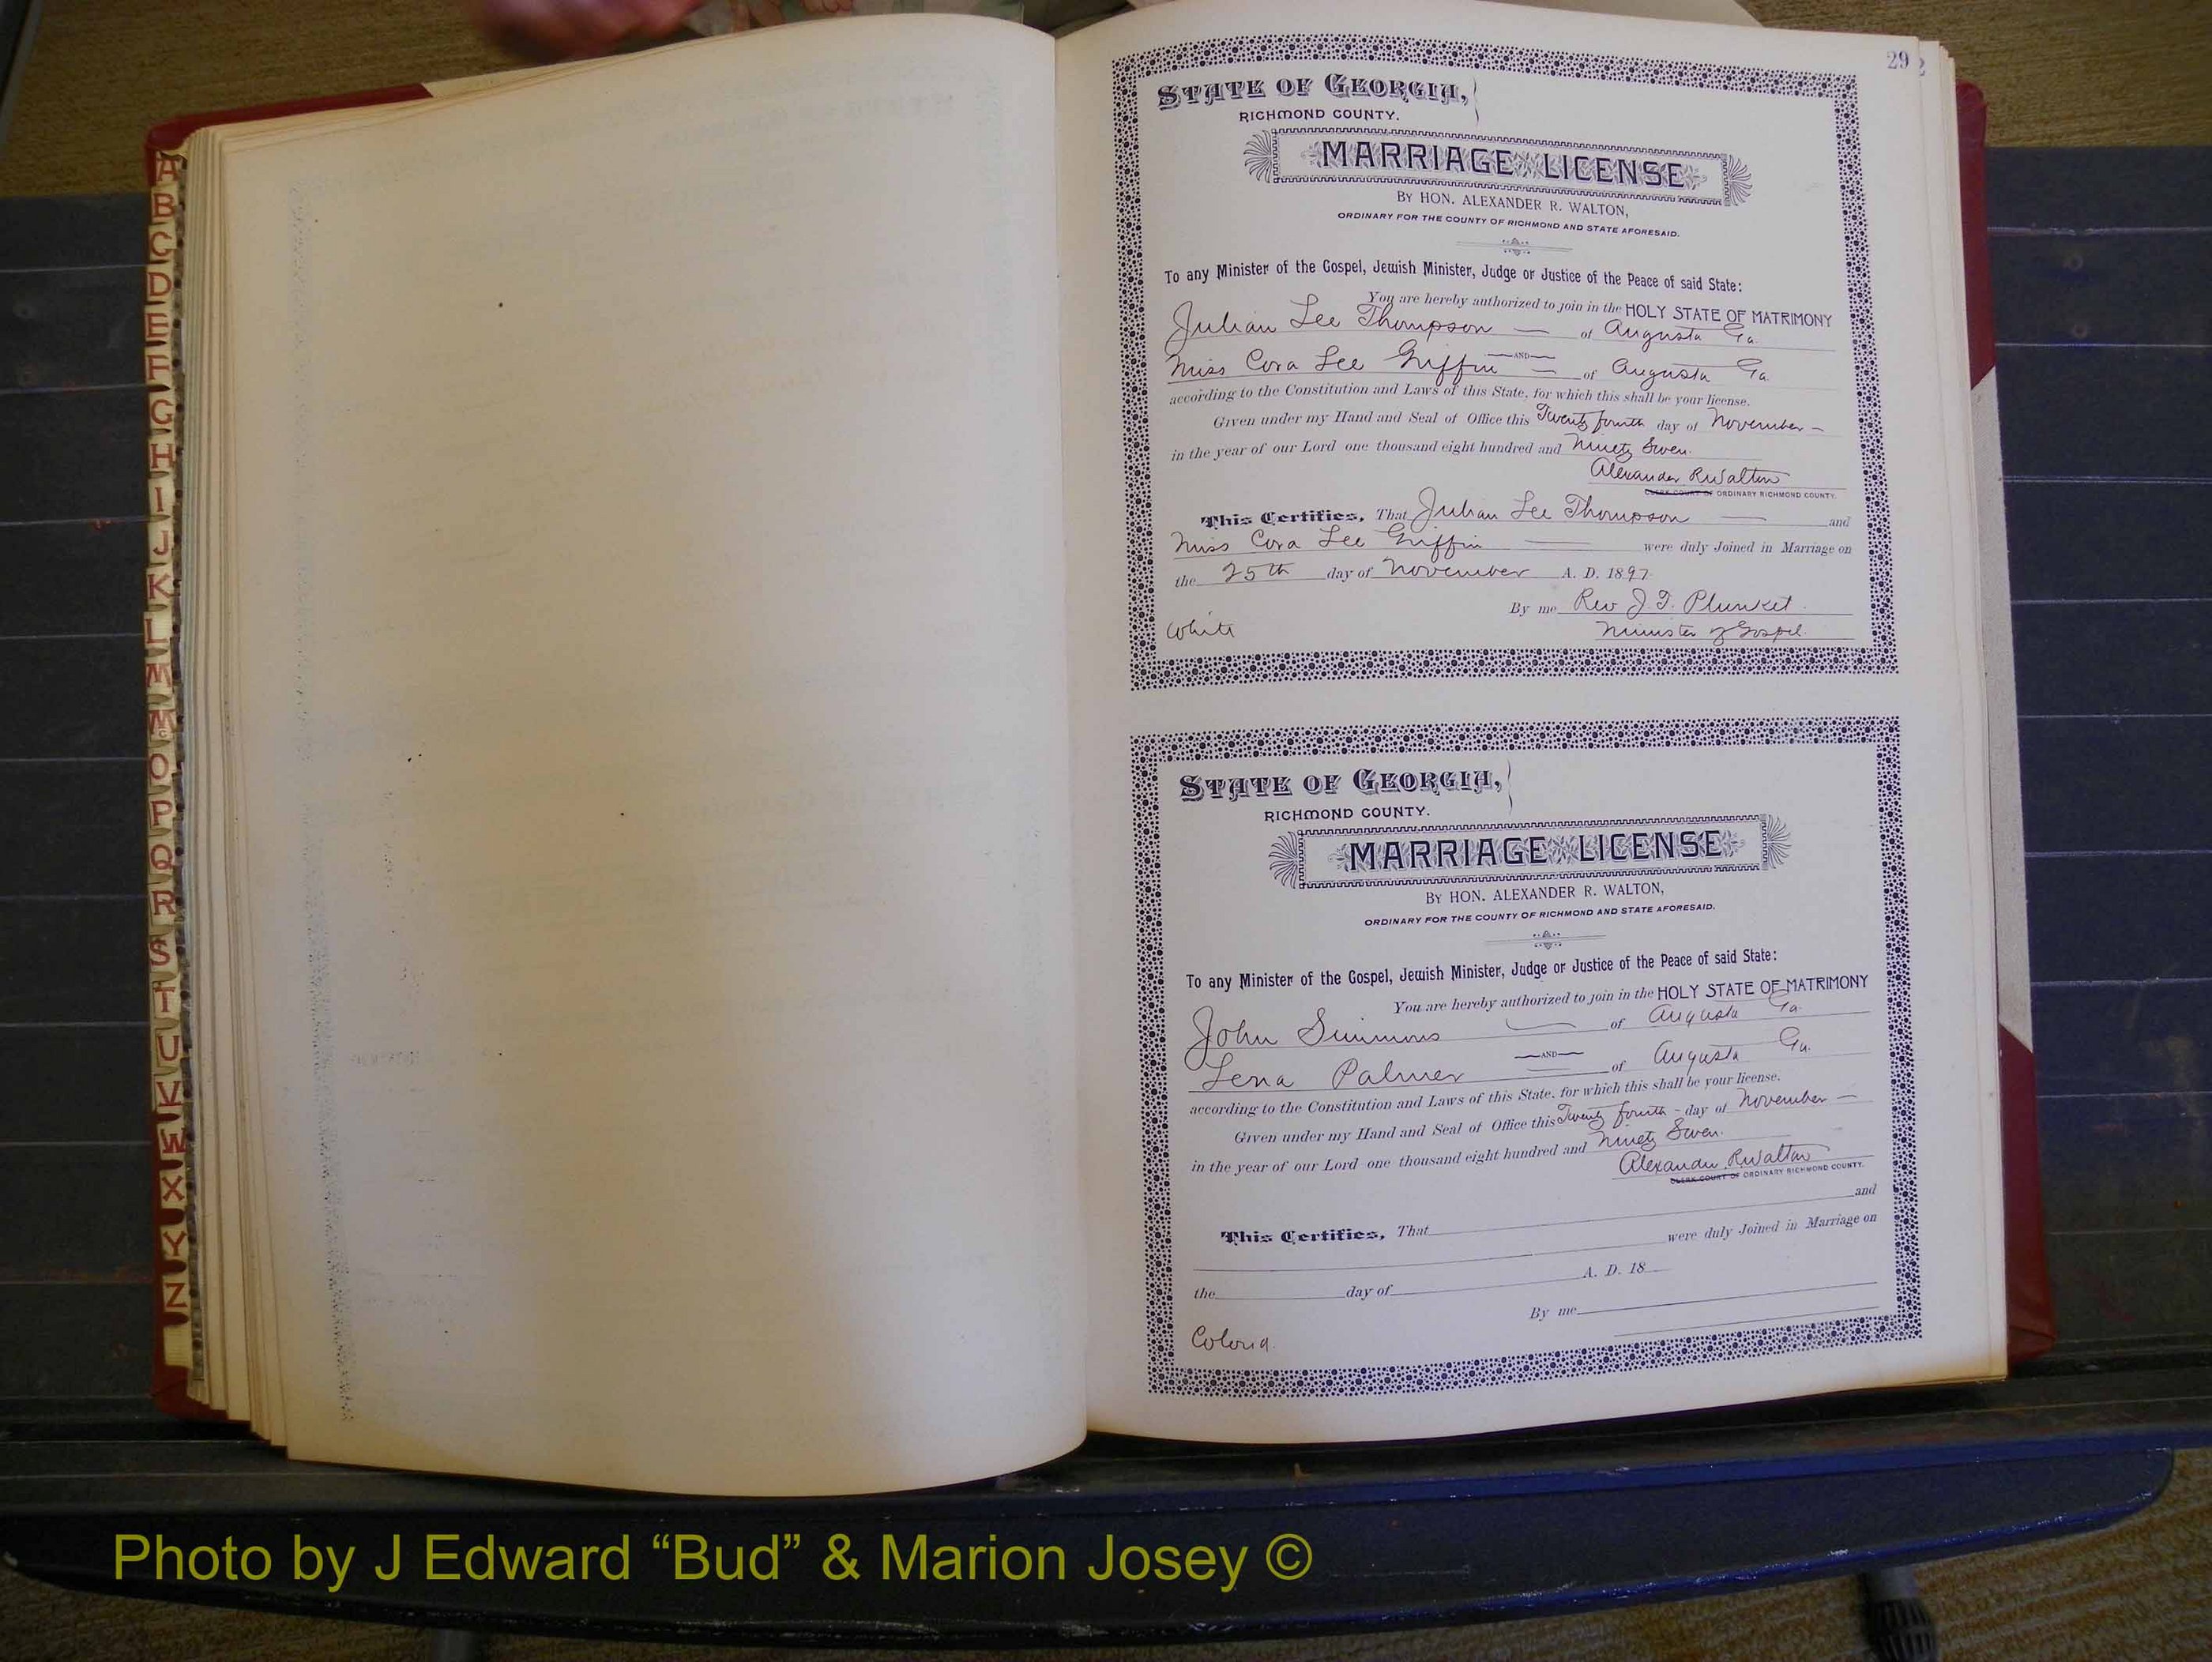 A
B
C
D
E
F
G
H
I
J
K
L
M
Mc
O
P
Q
R
S
T
U
V
W
X
Y
Z
292
STATE OF GEORGIA,
RICHMOND COUNTY.
MARRIAGE LICENSE
BY HON. ALEXANDER R. WALTON,
ORDINARY FOR THE COUNTY OF RICHMOND AND STATE AFORESAID.
To any Minister of the Gospel, Jewish Minister, Judge or Justice of the Peace of said State:
You are hereby authorized to join in the HOLY STATE OF MATRIMONY
Julian Lee Thompson — of Augusta Ga.
—AND—
Miss Cora Lee Griffin — of Augusta Ga.
according to the Constitution and Laws of this State, for which this shall be your license.
Given under my Hand and Seal of Office this Twenty fourth day of November —
in the year of our Lord one thousand eight hundred and Ninety Seven.
Alexander R Walton
CLERK COURT OF ORDINARY RICHMOND COUNTY.
This Certifies, That Julian Lee Thompson — and
Miss Cora Lee Griffin — were duly Joined in Marriage on
the 25th day of November A. D. 1897
By me Rev J. T. Plunket.
White Minister of Gospel.
STATE OF GEORGIA,
RICHMOND COUNTY.
MARRIAGE LICENSE
BY HON. ALEXANDER R. WALTON,
ORDINARY FOR THE COUNTY OF RICHMOND AND STATE AFORESAID.
To any Minister of the Gospel, Jewish Minister, Judge or Justice of the Peace of said State:
You are hereby authorized to join in the HOLY STATE OF MATRIMONY
John Simmons — of Augusta Ga.
—AND—
Lena Palmer — of Augusta Ga.
according to the Constitution and Laws of this State, for which this shall be your license.
Given under my Hand and Seal of Office this Twenty fourth - day of November —
in the year of our Lord one thousand eight hundred and Ninety Seven.
Alexander R Walton
CLERK COURT OF ORDINARY RICHMOND COUNTY.
and
This Certifies, That
were duly Joined in Marriage on
the day of A. D. 18
By me
Colord.
Photo by J Edward “Bud” & Marion Josey ©